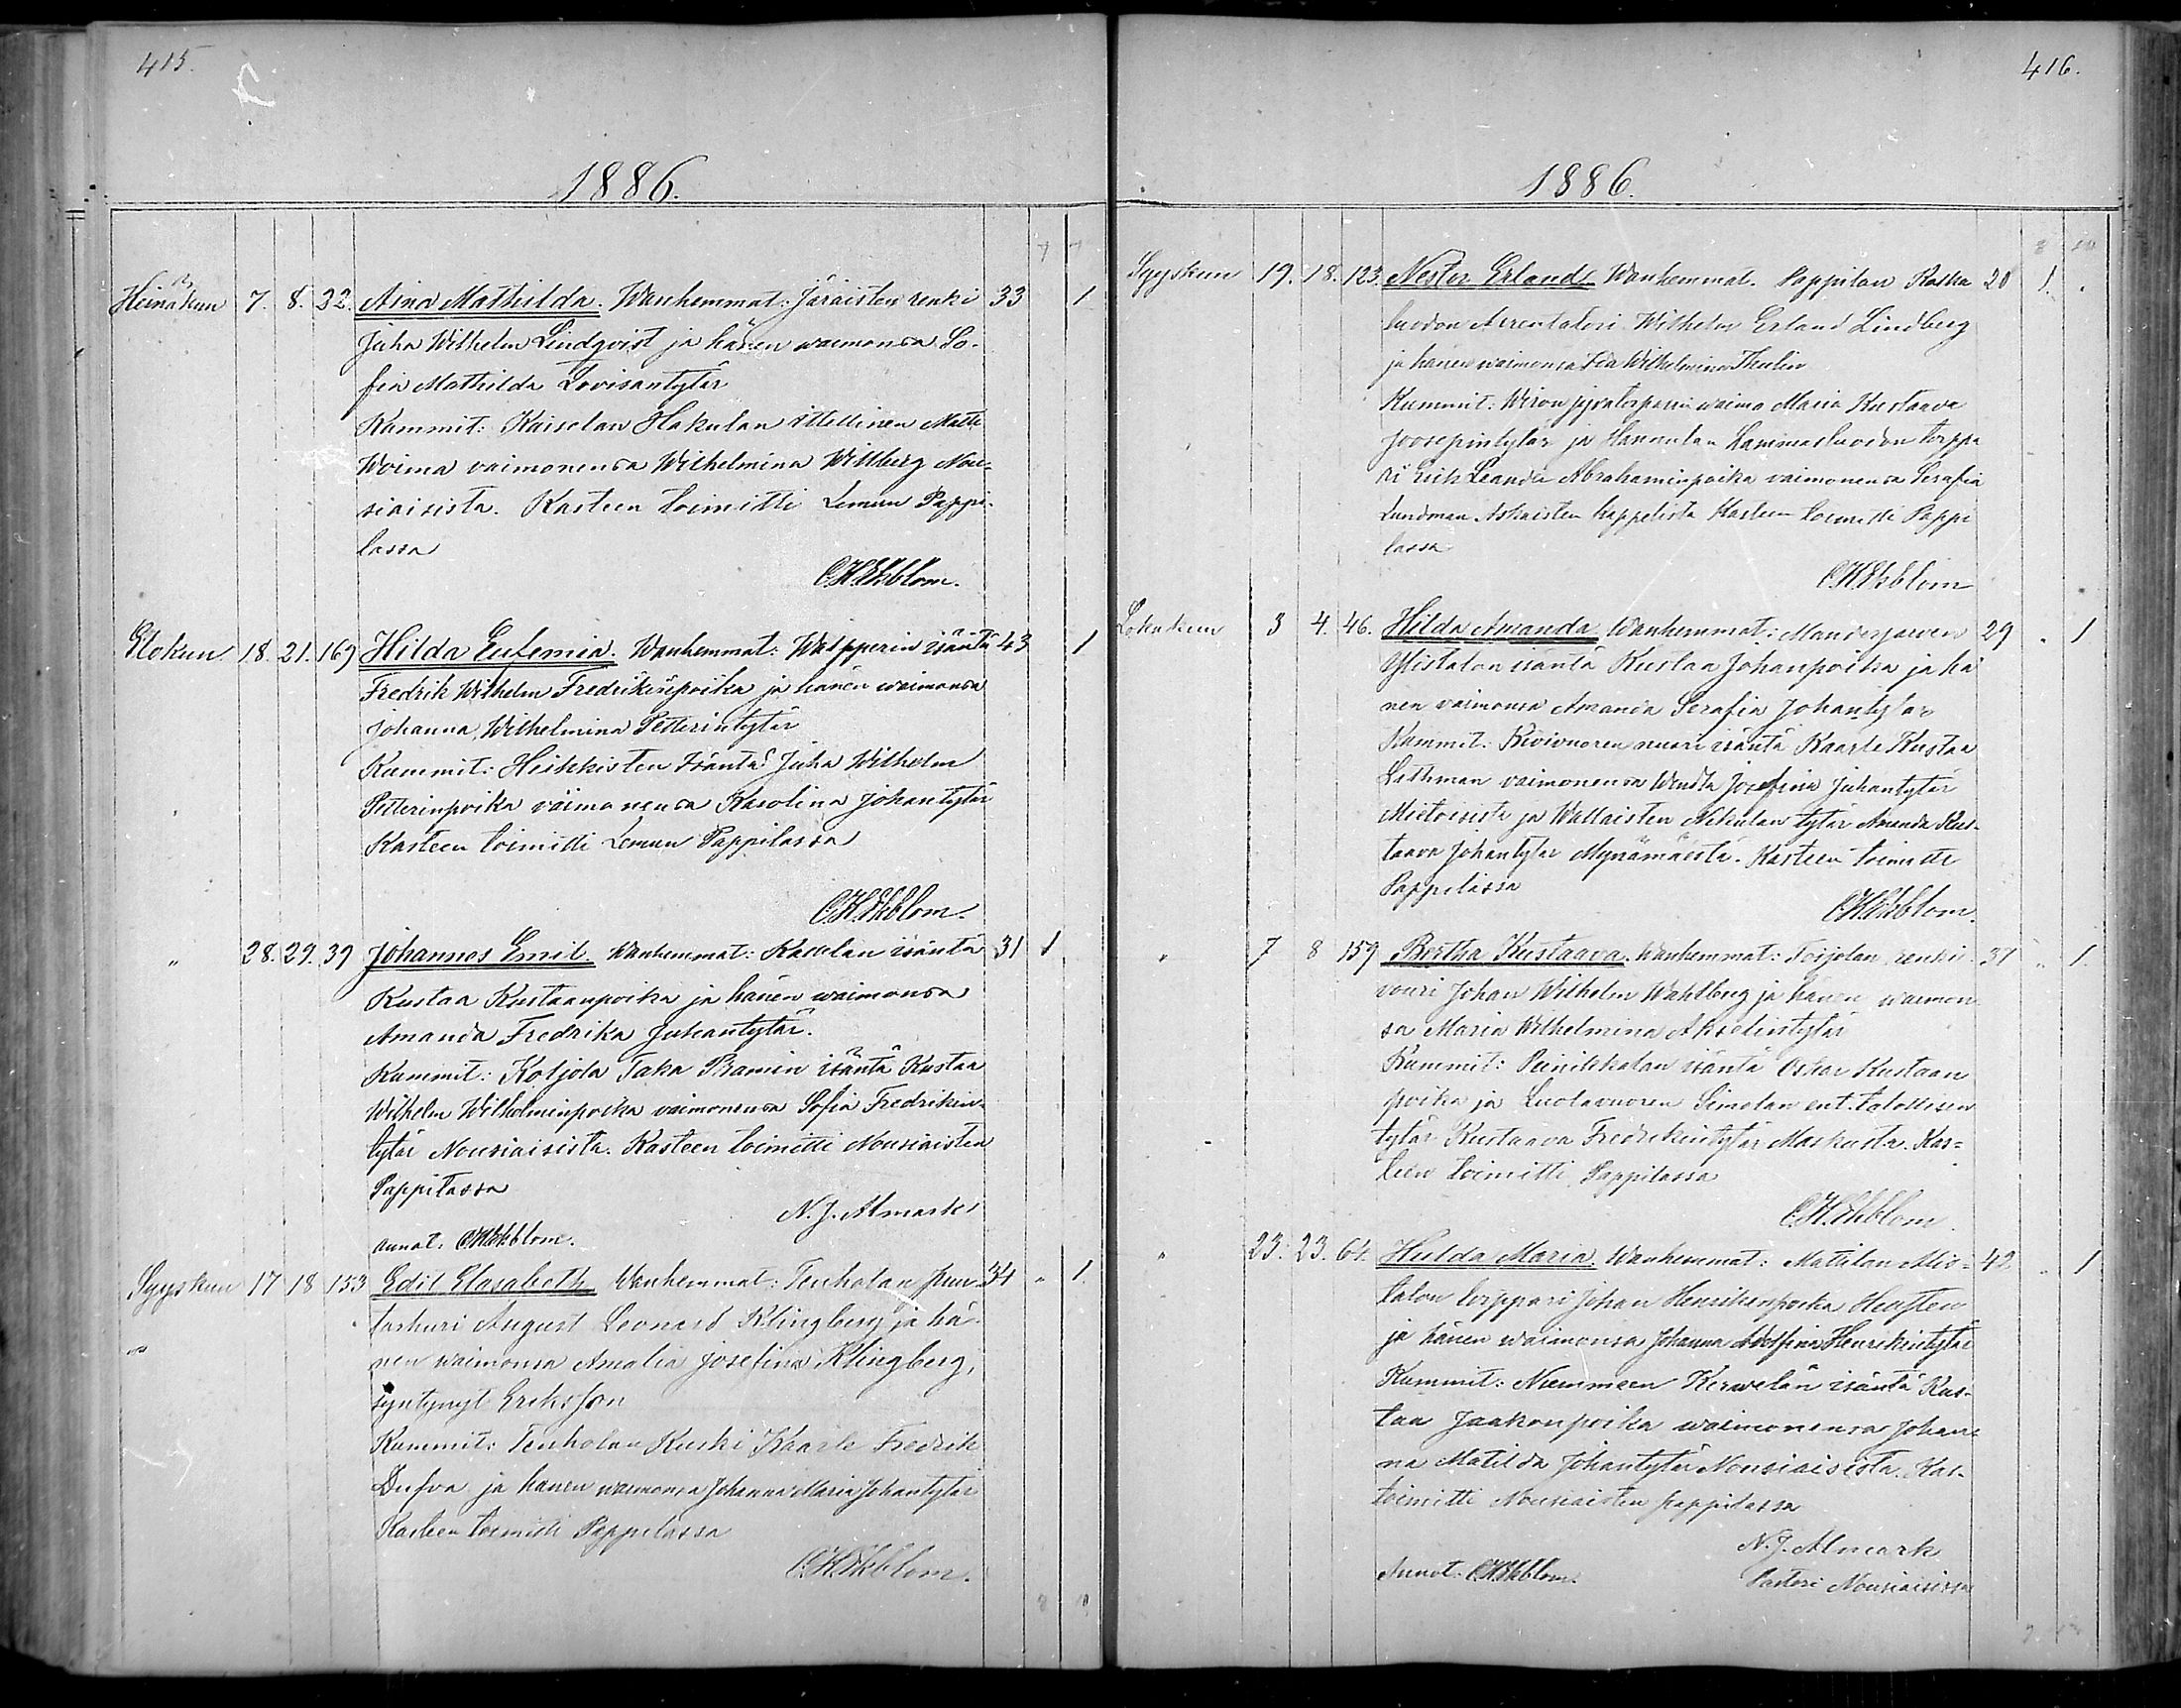 415.
1886.
Heinäkun 7. 8. 32. Aina Mathilda. Wanhemmat: Järäisten renki 33 1
Juha Wilhelm Lindqvist ja hänen waimonsa So-
fia Mathilda Lovisantytär
Kummit: Kaiselan Hakulan ittellinen Matti
Woima vaimonensa Wilhelmina Willberg Nou-
siaisista. Kasteen toimitti Lemun Pappi-
lassa
C.H.Ekblom.
Elokun 18. 21. 169 Hilda Eufemia. Wanhemmat: isäntä 43 1
Fredrik Wilhelm Fredrikinpoika ja hänen waimonsa
Johanna Wilhelmina Petterintytär
Kummit: Heikkisten Isäntä Juha Wilhelm
Petterinpoika vaimonensa Karolina Johantytär
Kasteen toimitti Lemun Pappilassa
C.H.Ekblom.
" 28. 29. 39 Johannes Emil. Wanhemmat: isäntä 31 1
Kustaa Kustaanpoika ja hänen waimonsa
Amanda Fredrika Juhantytär.
Kummit: Koljola Taka isäntä Kustaa
Wilhelm Wilhelminpoika vaimonensa Sofia Fredrikin-
tytär Nousiaisista. Kasteen toimitti Nousiaisten
Pappilassa
N. J. Almark
annot. C.H.Ekblom.
Syyskun 17 18 153 Edit Elisabeth Wanhemmat: Tenholan Juu- 34 " 1.
tasturi August Leonard Klingberg ja hä-
nen waimonsa Amalia Josefina Klingberg,
syntynyt Eriksson
Kummit: Tenholan Kuski Kaarle Fredrik
Dufva ja hänen waimonsa Johanna Maria Johantytär
Kasteen toimitti Pappilassa
C.H.Ekblom.
416.
1886.
Syyskun 19. 18. 123. Nestor Erland Wanhemmat. Pappilan Raska 20 1.
luodon Arrentatori Wilhelm Erland Lindberg
ja hänen waimonsa Ida Wilhelmina Thulin
Kummit: Wiron waimo Maria Kustaava
Joosepintytär ja Hannulan Lammasluodon torppa
ri Erik Leander Abrahaminpoika vaimonensa Serafia
Lundman Askaisten kappelista Kasteen toimitti Pappi
lassa
C.H.Ekblom
Lokakun 3 4. 46. Hilda Amanda Wanhemmat: 29 " 1
Ylistalon isäntä Kustaa Johanpoika ja hä
nen vaimonsa Amanda Serafia Johantytär
Kummit. Kivivuoren nuori isäntä Kaarle Kustaa
Lethman vaimonensa Wendla Josefina Juhantytär
Mietoisista ja Wallaisten Nikulan tytär Amanda Kus-
taava Johantytär Mynämäestä. Kasteen toimitti
Pappilassa
C.H.Ekblom.
" 7 8 159 Bertha Kustaava. Wanhemmat: renki- 37 " 1.
vouri Johan Wilhelm Wahlberg ja hänen waimon
sa Maria Wilhelmina Akselintytär
Kummit: Peinikkalan isäntä Oskar Kustaan
poika ja Luolavuoren Simolan ent. talollisen
tytär Kustaava Fredrikintytär Maskusta. Kas=
teen toimitti Pappilassa
C.H.Ekblom
" 23. 23. 64. Hulda Maria. Wanhemmat: Matilan Alis= 42 " 1
talon torppari Johan Henrikinpoika
ja hänen waimonsa Johanna Adolfina Henrikintytär
Kummit: Nummen Kerwelän isäntä Kus-
taa Jaakonpoika waimonensa Johan-
na Matilda Johantytär Nousiaisista. Kas-
toimitti Nousiaisten pappilassa
N. J. Almark
Annot. C.H.Ekblom. Pastori Nousiaisissa